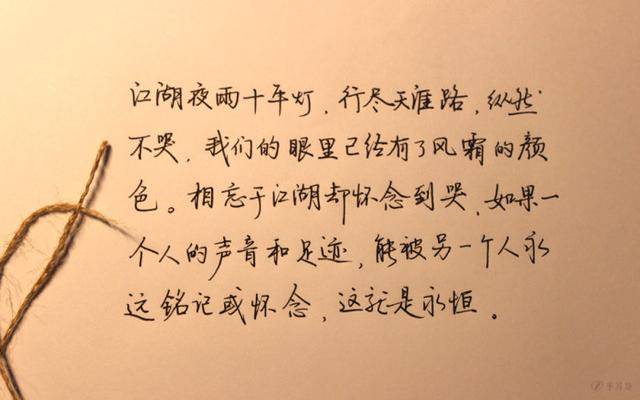 江湖夜雨十年灯，行尽天涯路，纵然
不哭，我们的眼里已经有了风霜的颜
色。相忘于江湖却怀念到哭，如果一
个人的声音和足迹，能被另一个人永
远铭记或怀念，这就是永恒。